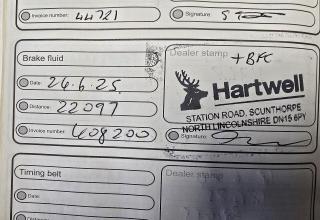 Invoice number: 44721
Signature:
Brake fluid
Date: 26.6.25
Distance: 22097
Invoice number: 408200
Dealer stamp +BFC
Hartwell
STATION ROAD, SCUNTHORPE
NORTH LINCOLNSHIRE DN15 6PY
Signature:
Timing belt
Date:
Distance:
Dealer stamp